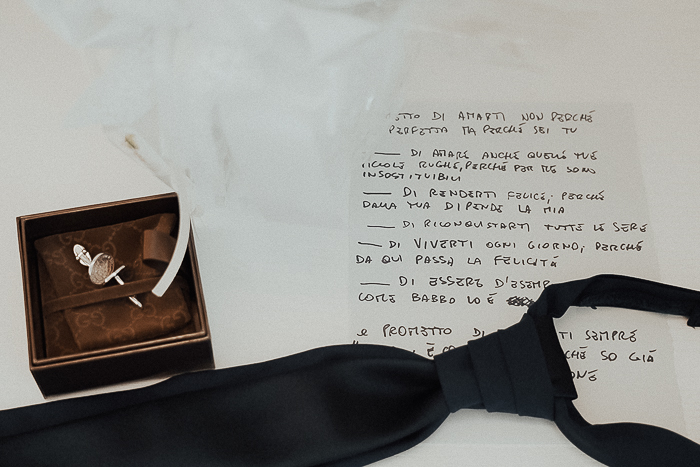 DI AMARTI NON PERCHÉ
PERFETTA MA PERCHÉ SEI TU
DI AMARE ANCHE QUELLE TUE
PICCOLE RUGHE, PERCHÉ PER ME SONO
INSOSTITUIBILI
DI RENDERTI FELICE, PERCHÉ
DALLA TUA DIPENDE LA MIA
DI RICONQUISTARTI TUTTE LE SERE
DI VIVERTI OGNI GIORNO, PERCHÉ
DA QUI PASSA LA FELICITÁ
DI ESSERE D'ESEMP
COME BABBO LO È
e PROMETTO DI TI SEMPRE
È CHÉ SO GIÁ